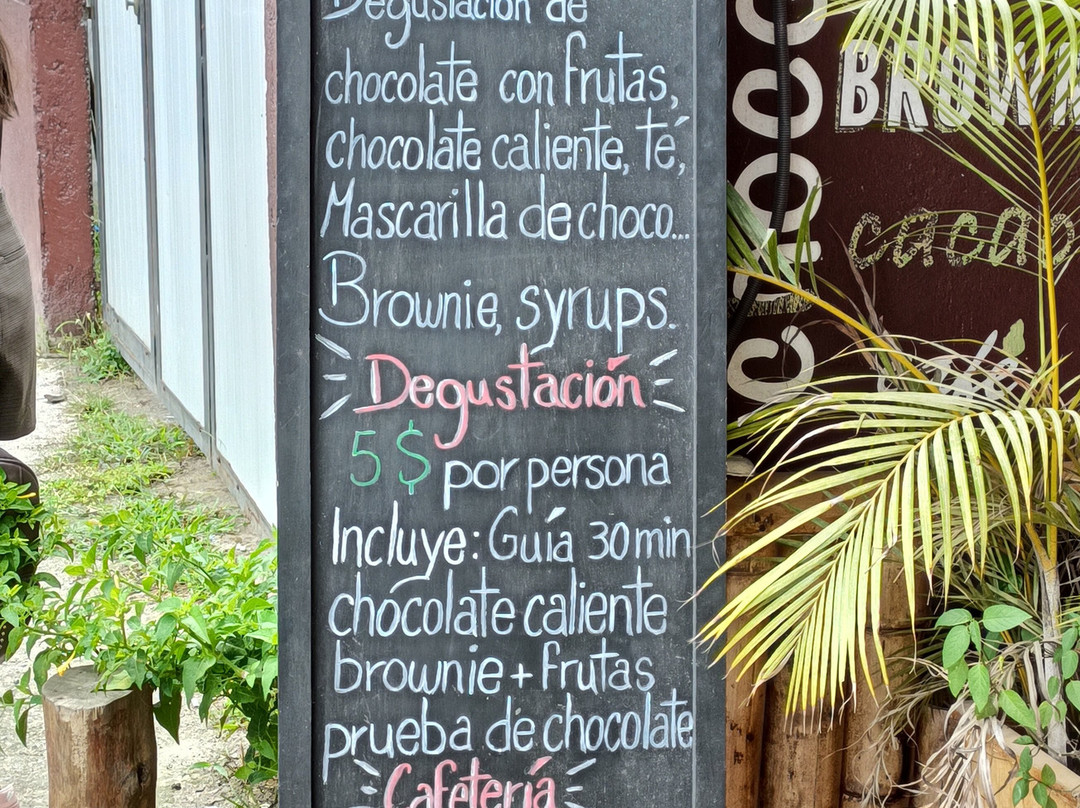 Degustación de
chocolate con frutas,
chocolate caliente, té,
Mascarilla de choco...
Brownie, syrups.
Degustación
5$ por persona
Incluye: Guía 30 min
chocolate caliente
brownie + frutas
prueba de chocolate
Cafetería
CHOCO
BROWN
cacao